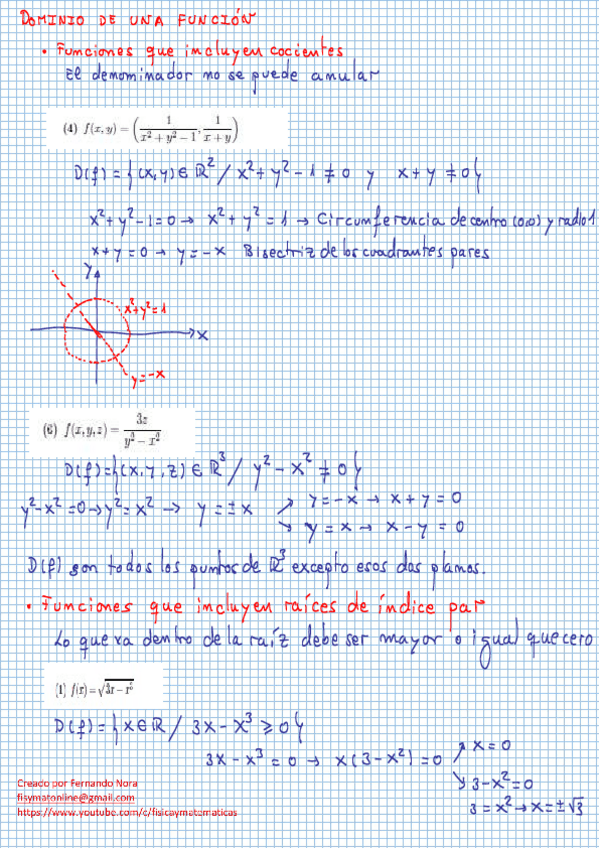 DOMINIO DE UNA FUNCIÓN
• Funciones que incluyen cocientes
El denominador no se puede anular
(4) f(x, y) = (1/(x² + y² − 1), 1/(x + y))
D(f) = {(x,y) ∈ ℝ² / x² + y² − 1 ≠ 0 y x + y ≠ 0}
x² + y² − 1 = 0 → x² + y² = 1 → Circunferencia de centro (0,0) y radio 1
x + y = 0 → y = −x Bisectriz de los cuadrantes pares
y
x² + y² = 1
x
y = −x
(6) f(x, y, z) = 3z/(y² − x²)
D(f) = {(x, y, z) ∈ ℝ³ / y² − x² ≠ 0}
y² − x² = 0 → y² = x² → y = ±x ↗ y = −x → x + y = 0
↘ y = x → x − y = 0
D(f) son todos los puntos de ℝ³ excepto esos dos planos.
• Funciones que incluyen raíces de índice par
Lo que va dentro de la raíz debe ser mayor o igual que cero
(1) f(x) = √
D(f) = {x ∈ ℝ / 3x − x³ ≥ 0}
3x − x³ = 0 → x(3 − x²) = 0 ↗ x = 0
↘ 3 − x² = 0
3 = x² → x = ±√3
Creado por Fernando Nora
fisymatonline@gmail.com
https://www.youtube.com/c/fisicaymatematicas